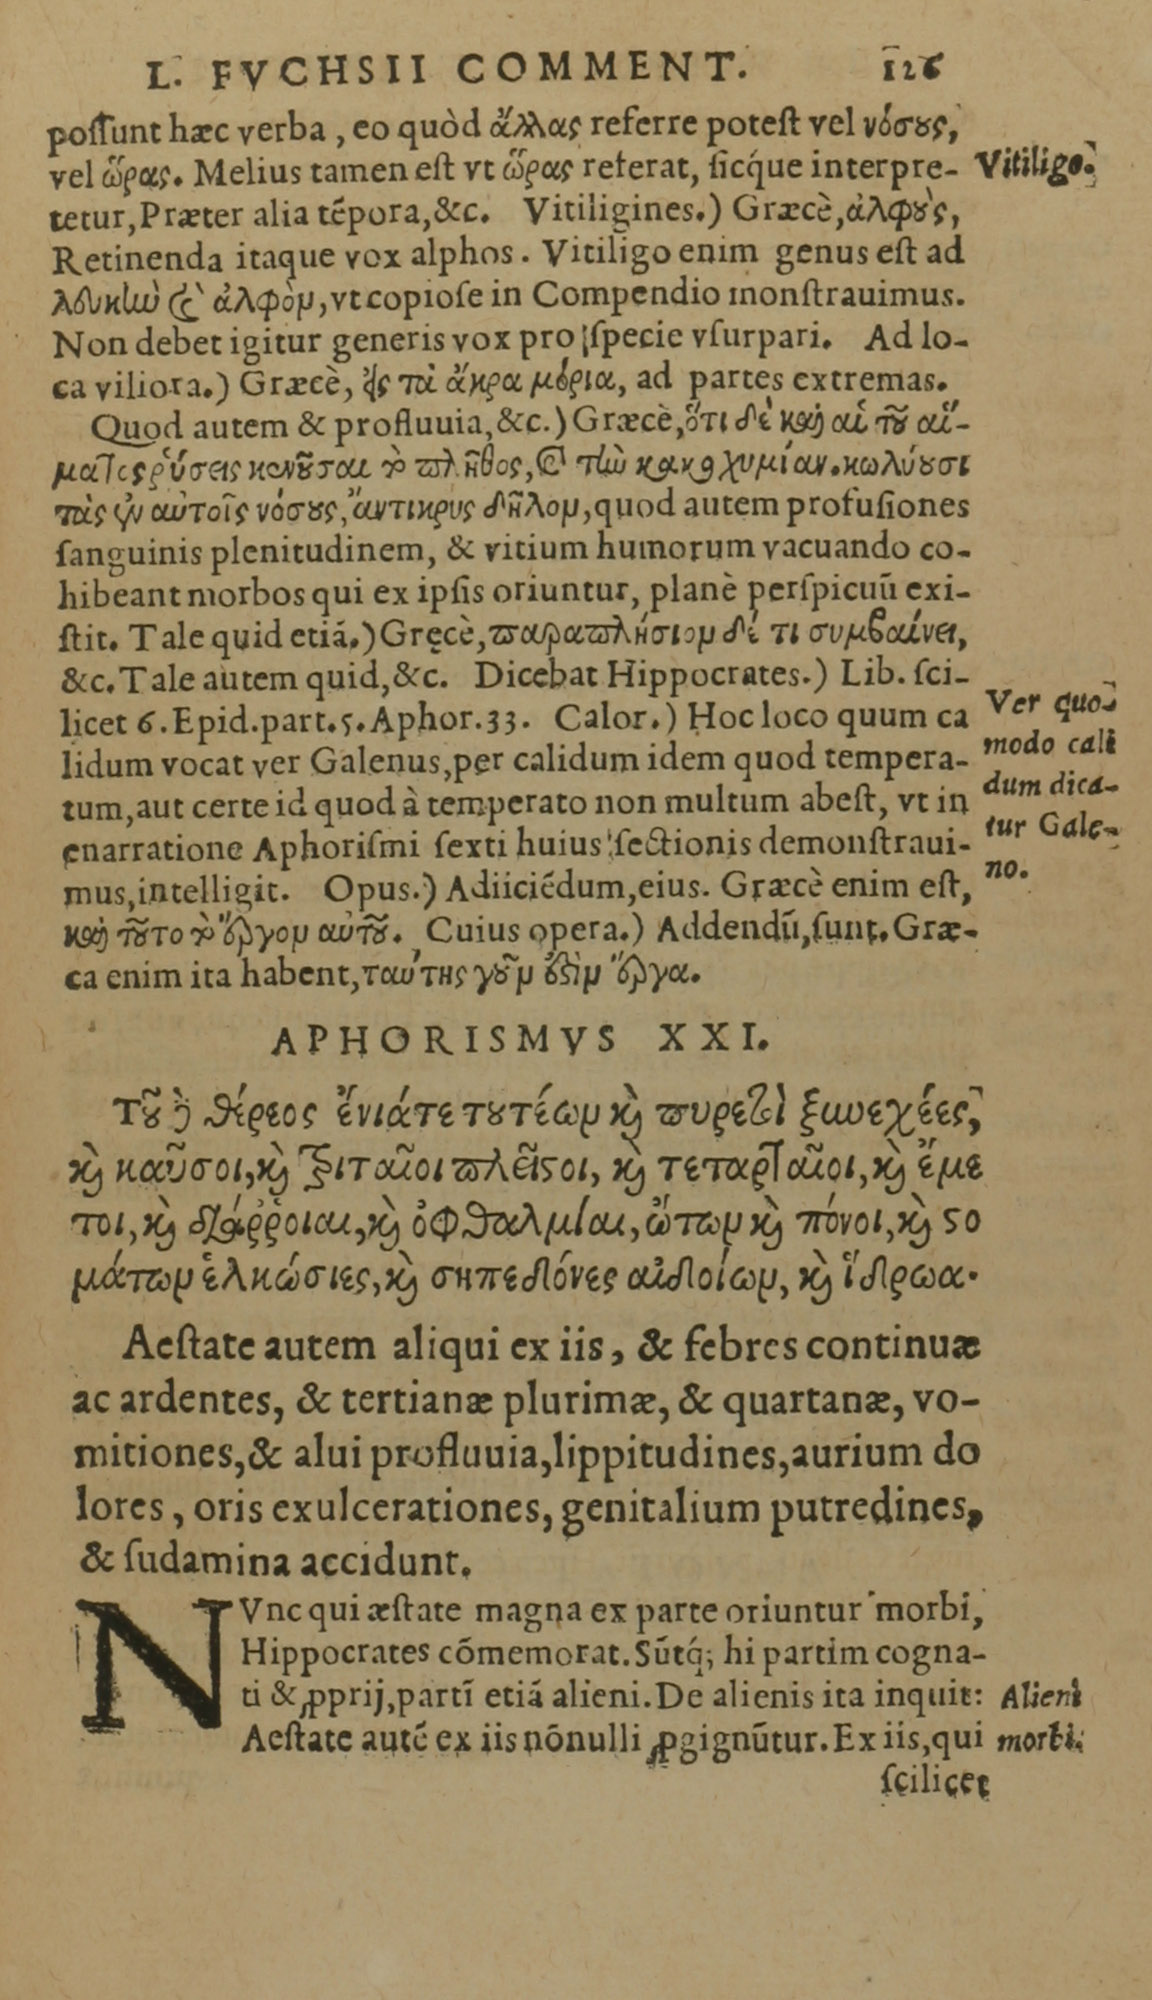 L. FVCHSII COMMENT. 126
poſſunt hæc verba, eo quòd ἄλλας referre poteſt vel νόσους,
vel ὥρας. Melius tamen eſt vt ὥρας referat, ſicq́ue interpre-
Vitiligo.
tetur, Præter alia tẽpora, &c. Vitiligines.) Græcè, ἀλφοὺς,
Retinenda itaque vox alphos. Vitiligo enim genus eſt ad
λευκὴν καὶ ἀλφὸμ, vt copioſe in Compendio monſtrauimus.
Non debet igitur generis vox pro ſpecie vſurpari. Ad lo-
ca viliora.) Græcè, εἰς τὰ ἄκρα μόρια, ad partes extremas.
Quod autem & profluuia, &c.) Græcè, ὅτι δὲ καὶ αἱ τοῦ αἵ-
ματος ῥύσεις κενοῦσαι τὸ πλῆθος, καὶ τὴν κακοχυμίαν. κωλύουσι
τὰς ἐν αὐτοῖς νόσους, ἄντικρυς δῆλομ, quod autem profuſiones
ſanguinis plenitudinem, & vitium humorum vacuando co-
hibeant morbos qui ex ipſis oriuntur, planè perſpicuũ exi-
ſtit. Tale quid etiã.) Gręcè, παραπλήσιομ δέ τι συμβαίνει,
&c. Tale autem quid, &c. Dicebat Hippocrates.) Lib. ſci-
licet 6. Epid. part. 5. Aphor. 33. Calor.) Hoc loco quum ca
lidum vocat ver Galenus, per calidum idem quod tempera-
tum, aut certe id quod à temperato non multum abeſt, vt in
enarratione Aphoriſmi ſexti huius ſectionis demonſtraui-
mus, intelligit. Opus.) Adiiciẽdum, eius. Græcè enim eſt,
Ver quo-
modo cali
dum dica-
tur Gale-
no.
καὶ τοῦτο τὸ ἔργομ αὐτοῦ. Cuius opera.) Addendũ, ſunt. Græ-
ca enim ita habent, ταύτης γοῦμ ἐστὶμ ἔργα.
APHORISMVS XXI.
Τοῦ δὲ θέρεος ἔνιά τε τουτέωμ καὶ πυρετοὶ ξυνεχέες,
καὶ καῦσοι, καὶ τριταῖοι πλεῖστοι, καὶ τεταρταῖοι, καὶ ἔμε
τοι, καὶ διάῤῥοιαι, καὶ ὀφθαλμίαι, ὤτωμ καὶ πόνοι, καὶ στο
μάτωμ ἑλκώσιες, καὶ σηπεδόνες αἰδοίωμ, καὶ ἵδρωα.
Aeſtate autem aliqui ex iis, & febres continuæ
ac ardentes, & tertianæ plurimæ, & quartanæ, vo-
mitiones, & alui profluuia, lippitudines, aurium do
lores, oris exulcerationes, genitalium putredines,
& ſudamina accidunt.
NVnc qui æſtate magna ex parte oriuntur morbi,
Hippocrates cõmemorat. Sũtq́; hi partim cogna-
ti & ꝓprij, partĩ etiã alieni. De alienis ita inquit:
Aeſtate autẽ ex iis nõnulli ꝓgignũtur. Ex iis, qui
Alieni
morbi.
ſcilicet